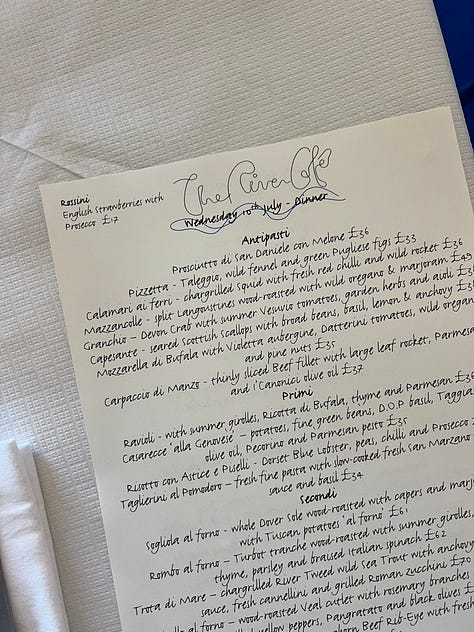 Rossini
English Strawberries with
Prosecco £17
The River Café
Wednesday 10th July - Dinner
Antipasti
Prosciutto di San Daniele con Melone £36
Pizzetta - Taleggio, wild fennel and green Pugliese figs £33
Calamari ai ferri - chargrilled squid with fresh red chilli and wild rocket £36
Mazzancolle - split Langoustines wood-roasted with wild oregano & marjoram £49
Granchio – Devon Crab with summer Vesuvio tomatoes, garden herbs and aioli
Capesante - seared Scottish scallops with broad beans, basil, lemon & anchovy
Mozzarella di Bufala with Violetta aubergine, Datterini tomatoes, wild
and pine nuts £35
Carpaccio di Manzo - thinly sliced Beef fillet with large leaf rocket,
and i'Canonici olive oil £37
Primi
Ravioli - with summer girolles, Ricotta di Bufala, thyme and Parmesan
Casarecce 'alla Genovese' – potatoes, fine green beans, D.O.P basil,
olive oil, Pecorino and Parmesan pesto £35
Risotto con Astice e Piselli - Dorset Blue Lobster, peas, chilli and Prosecco
Taglierini al Pomodoro – fresh fine pasta with slow-cooked fresh San Marzano
sauce and basil £34
Secondi
Sogliola al forno - whole Dover Sole wood-roasted with capers and
with Tuscan potatoes 'al forno' £61
Rombo al forno – Turbot tranche wood-roasted with summer girolles,
thyme, parsley and braised Italian spinach £62
Trota di Mare – chargrilled River Tweed wild sea Trout with anchovy
sauce, fresh cannellini and grilled Roman zucchini £70
al forno – wood-roasted Veal cutlet with rosemary branches
yellow peppers, Pangratato and black olives
Beef Rib-Eye with fresh